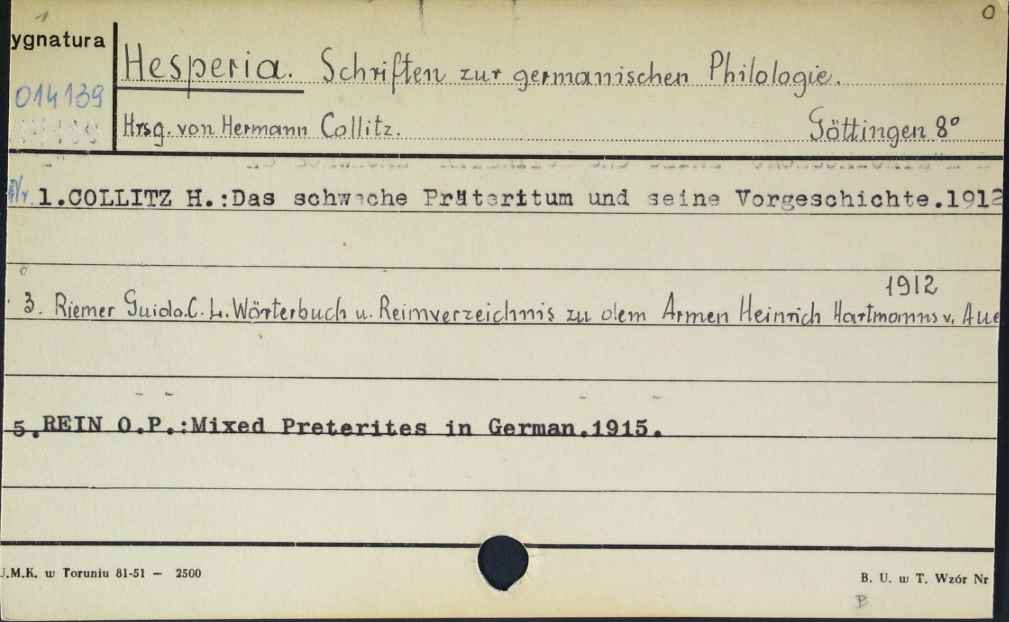 0
ygnatura
Hesperia. Schriften zur germanischen Philologie.
014139
Hrsg. von Hermann Collitz. Göttingen 8°
1.COLLITZ H.:Das schwache Präteritum und seine Vorgeschichte.1912
1912
3. Riemer Guido.C.L. Wörterbuch u. Reimverzeichnis zu dem Armen Heinrich Hartmanns v. Aue
5.REIN O.P.:Mixed Preterites in German.1915.
U.M.K. w Toruniu 81-51 — 2500
B. U. w T. Wzór Nr
B